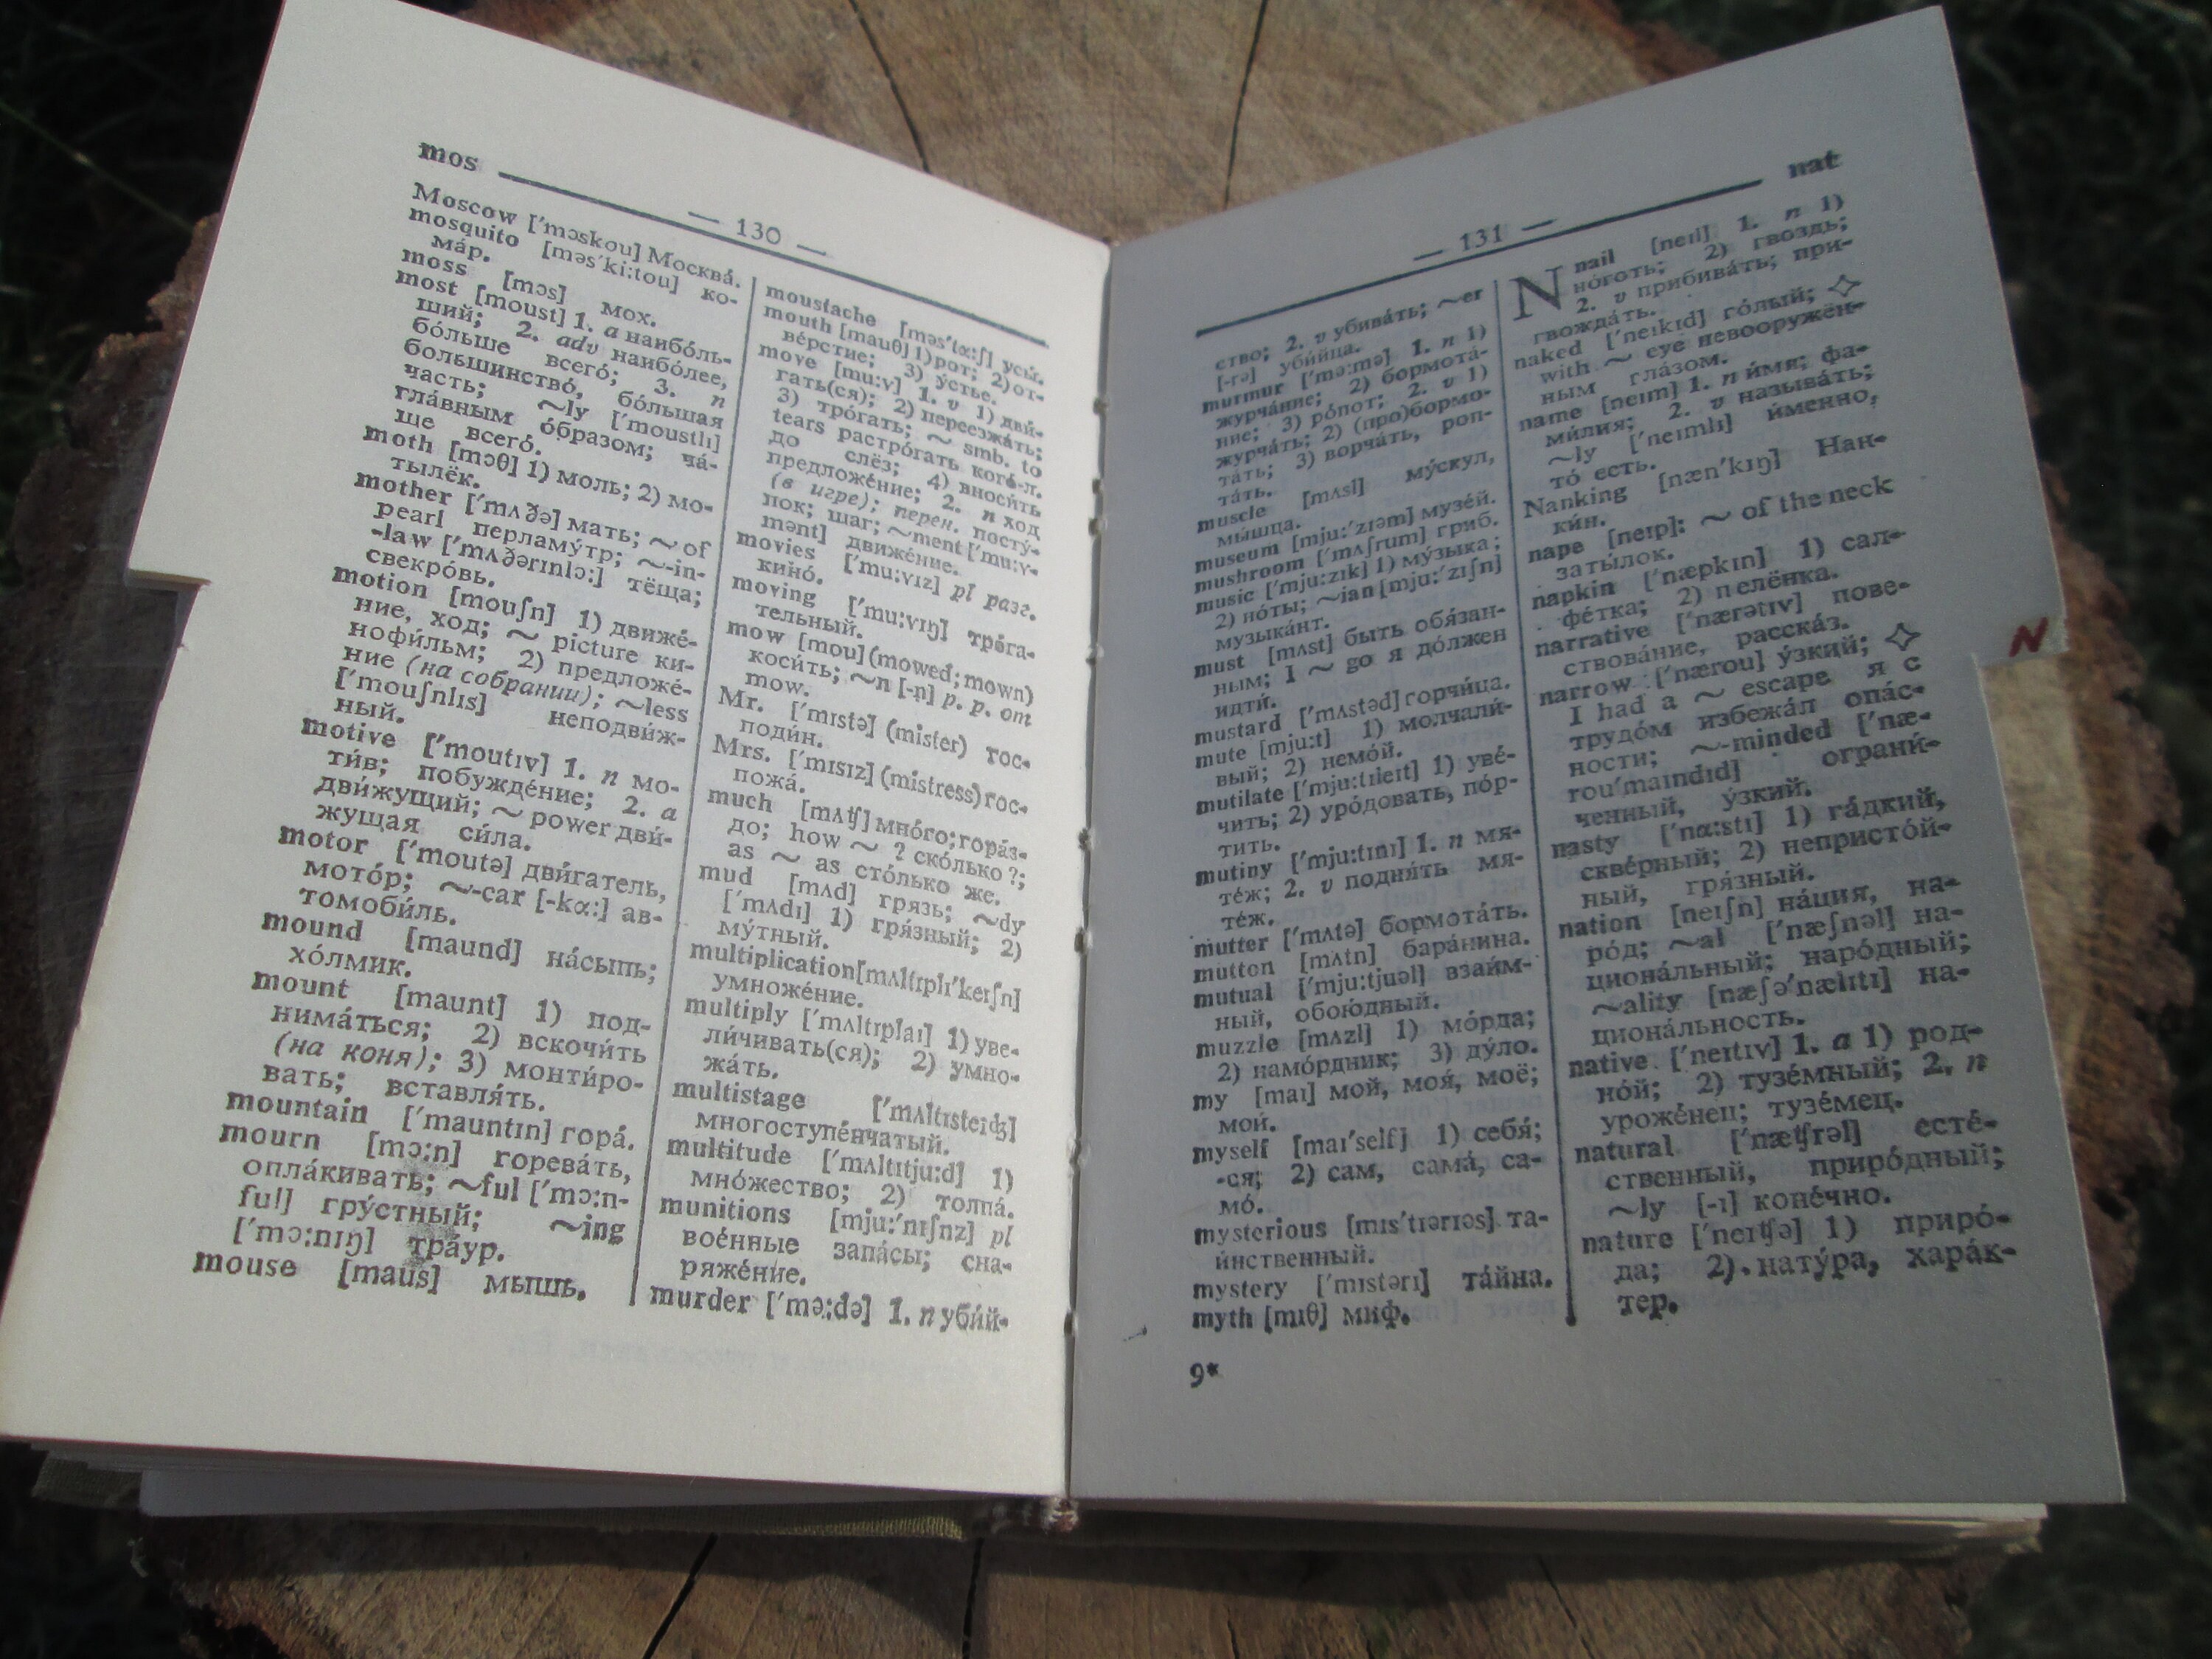 mos
— 130 —
Moscow [ˈmɔskou] Москва́.
mosquito [məsˈki:tou] ко-
ма́р.
moss [mɔs] мох.
most [moust] 1. a наибо́ль-
ший; 2. adv наибо́лее,
бо́льше всего́; 3. n
большинство́, бо́льшая
часть; ~ly [ˈmoustlɪ]
гла́вным о́бразом; ча́-
ще всего́.
moth [mɔθ] 1) моль; 2) мо-
тылёк.
mother [ˈmʌðə] мать; ~ of
pearl перламу́тр; ~-in-
-law [ˈmʌðərɪnlɔ:] тёща;
свекро́вь.
motion [mouʃn] 1) движе́-
ние, ход; ~ picture ки-
нофи́льм; 2) предложе́-
ние (на собрании); ~less
[ˈmouʃnlɪs] неподви́ж-
ный.
motive [ˈmoutɪv] 1. n мо-
ти́в; побужде́ние; 2. a
дви́жущий; ~ power дви́-
жущая си́ла.
motor [ˈmoutə] дви́гатель,
мото́р; ~-car [-kɑ:] ав-
томоби́ль.
mound [maund] на́сыпь;
хо́лмик.
mount [maunt] 1) под-
нима́ться; 2) вскочи́ть
(на коня); 3) монти́ро-
вать; вставля́ть.
mountain [ˈmauntɪn] гора́.
mourn [mɔ:n] горева́ть,
опла́кивать; ~ful [ˈmɔ:n-
ful] гру́стный; ~ing
[ˈmɔ:nɪŋ] тра́ур.
mouse [maus] мышь.
moustache [məsˈtɑ:ʃ] усы́.
mouth [mauθ] 1) рот; 2) от-
ве́рстие; 3) у́стье.
move [mu:v] 1. v 1) дви́-
гать(ся); 2) переезжа́ть;
3) тро́гать; ~ smb. to
tears растро́гать кого́-л.
до слёз; 4) вноси́ть
предложе́ние; 2. n ход
(в игре); перен. посту́-
пок; шаг; ~ment [ˈmu:v-
mənt] движе́ние.
movies [ˈmu:vɪz] pl разг.
кино́.
moving [ˈmu:vɪŋ] тро́га-
тельный.
mow [mou] (mowed; mown)
коси́ть; ~n [-n] p. p. от
mow.
Mr. [ˈmɪstə] (mister) гос-
поди́н.
Mrs. [ˈmɪsɪz] (mistress) гос-
пожа́.
much [mʌʧ] мно́го; гора́з-
до; how ~ ? ско́лько?;
as ~ as сто́лько же.
mud [mʌd] грязь; ~dy
[ˈmʌdɪ] 1) гря́зный; 2)
му́тный.
multiplication [mʌltɪplɪˈkeɪʃn]
умноже́ние.
multiply [ˈmʌltɪplaɪ] 1) уве-
ли́чивать(ся); 2) умно-
жа́ть.
multistage [ˈmʌltɪsteɪʤ]
многоступе́нчатый.
multitude [ˈmʌltɪtju:d] 1)
мно́жество; 2) толпа́.
munitions [mju:ˈnɪʃnz] pl
вое́нные запа́сы; сна-
ряже́ние.
murder [ˈmə:də] 1. n уби́й-
nat
— 131 —
ство; 2. v убива́ть; ~er
[-rə] уби́йца.
murmur [ˈmə:mə] 1. n 1)
журча́ние; 2) бормота́-
ние; 3) ро́пот; 2. v 1)
журча́ть; 2) (про)бормо-
та́ть; 3) ворча́ть, роп-
та́ть.
muscle [mʌsl] му́скул,
мы́шца.
museum [mju:ˈzɪəm] музе́й.
mushroom [ˈmʌʃrum] гриб.
music [ˈmju:zɪk] 1) му́зыка;
2) но́ты; ~ian [mju:ˈzɪʃn]
музыка́нт.
must [mʌst] быть обя́зан-
ным; I ~ go я до́лжен
идти́.
mustard [ˈmʌstəd] горчи́ца.
mute [mju:t] 1) молчали́-
вый; 2) немо́й.
mutilate [ˈmju:tɪleɪt] 1) уве́-
чить; 2) уро́довать, по́р-
тить.
mutiny [ˈmju:tɪnɪ] 1. n мя-
те́ж; 2. v подня́ть мя-
те́ж.
mutter [ˈmʌtə] бормота́ть.
mutton [mʌtn] бара́нина.
mutual [ˈmju:tjuəl] взаи́м-
ный, обою́дный.
muzzle [mʌzl] 1) мо́рда;
2) намо́рдник; 3) ду́ло.
my [maɪ] мой, моя́, моё;
мои́.
myself [maɪˈself] 1) себя́;
-ся; 2) сам, сама́, са-
мо́.
mysterious [mɪsˈtɪərɪəs] та-
и́нственный.
mystery [ˈmɪstərɪ] та́йна.
myth [mɪθ] миф.
9*
N
nail [neɪl] 1. n 1)
но́готь; 2) гвоздь;
2. v прибива́ть; при-
гвожда́ть.
naked [ˈneɪkɪd] го́лый; ◇
with ~ eye невооружён-
ным гла́зом.
name [neɪm] 1. n и́мя; фа-
ми́лия; 2. v называ́ть;
~ly [ˈneɪmlɪ] и́менно,
то́ есть.
Nanking [nænˈkɪŋ] Нан-
ки́н.
nape [neɪp]: ~ of the neck
заты́лок.
napkin [ˈnæpkɪn] 1) сал-
фе́тка; 2) пелёнка.
narrative [ˈnærətɪv] пове-
ствова́ние, расска́з.
narrow [ˈnærou] у́зкий; ◇
I had a ~ escape я с
трудо́м избежа́л опа́с-
ности; ~-minded [ˈnæ-
rouˈmaɪndɪd] ограни́-
ченный, у́зкий.
nasty [ˈnɑ:stɪ] 1) га́дкий,
скве́рный; 2) непристо́й-
ный, гря́зный.
nation [neɪʃn] на́ция, на-
ро́д; ~al [ˈnæʃnəl] на-
циона́льный; наро́дный;
~ality [næʃəˈnælɪtɪ] на-
циона́льность.
native [ˈneɪtɪv] 1. a 1) род-
но́й; 2) тузе́мный; 2. n
уроже́нец; тузе́мец.
natural [ˈnæʧrəl] есте́-
ственный, приро́дный;
~ly [-ɪ] коне́чно.
nature [ˈneɪʧə] 1) приро́-
да; 2) нату́ра, хара́к-
тер.
N